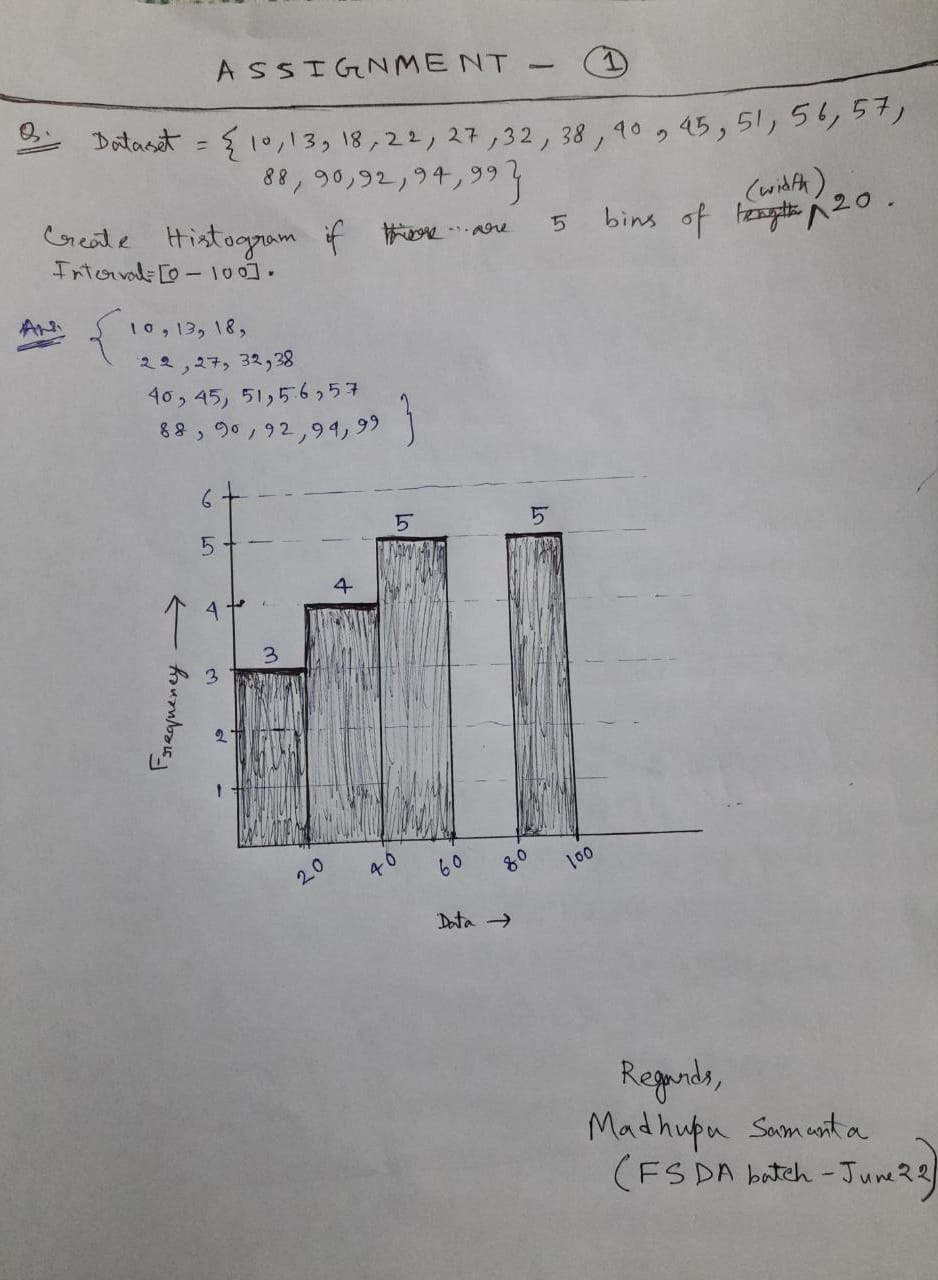 ASSIGNMENT - ①
Q. Dataset = { 10, 13, 18, 22, 27, 32, 38, 40, 45, 51, 56, 57,
88, 90, 92, 94, 99 }
(width)
Create Histogram if are 5 bins of length 20.
Interval=[0 - 100].
Ans. { 10, 13, 18,
22, 27, 32, 38
40, 45, 51, 56, 57
88, 90, 92, 94, 99 }
6
5
5
5
4
4
3
3
2
1
Frequency →
20
40
60
80
100
Data →
Regards,
Madhupa Samanta
(FSDA batch - June 22)